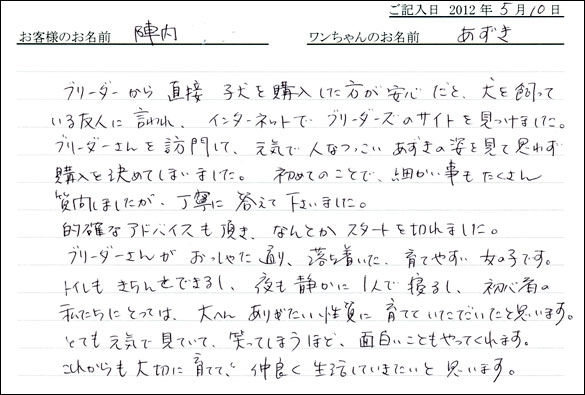 ご記入日 2012年5月10日
お客様のお名前 陣内 ワンちゃんのお名前 あずき
ブリーダーから直接子犬を購入した方が安心だと、犬を飼って
いる友人に言われ、インターネットでブリーダーズのサイトを見つけました。
ブリーダーさんを訪問して、元気で人なつっこいあずきの姿を見て思わず
購入を決めてしまいました。初めてのことで、細かい事もたくさん
質問しましたが、丁寧に答えて下さいました。
的確なアドバイスも頂き、なんとかスタートを切れました。
ブリーダーさんがおっしゃた通り、落ち着いた、育てやすい女の子です。
トイレもきちんとできるし、夜も静かに1人で寝るし、初心者の
私たちにとっては、大へんありがたい性質に育てていただいたと思います。
とても元気で見ていて、笑ってしまうほど、面白いこともやってくれます。
これからも大切に育てて、仲良く生活していきたいと思います。